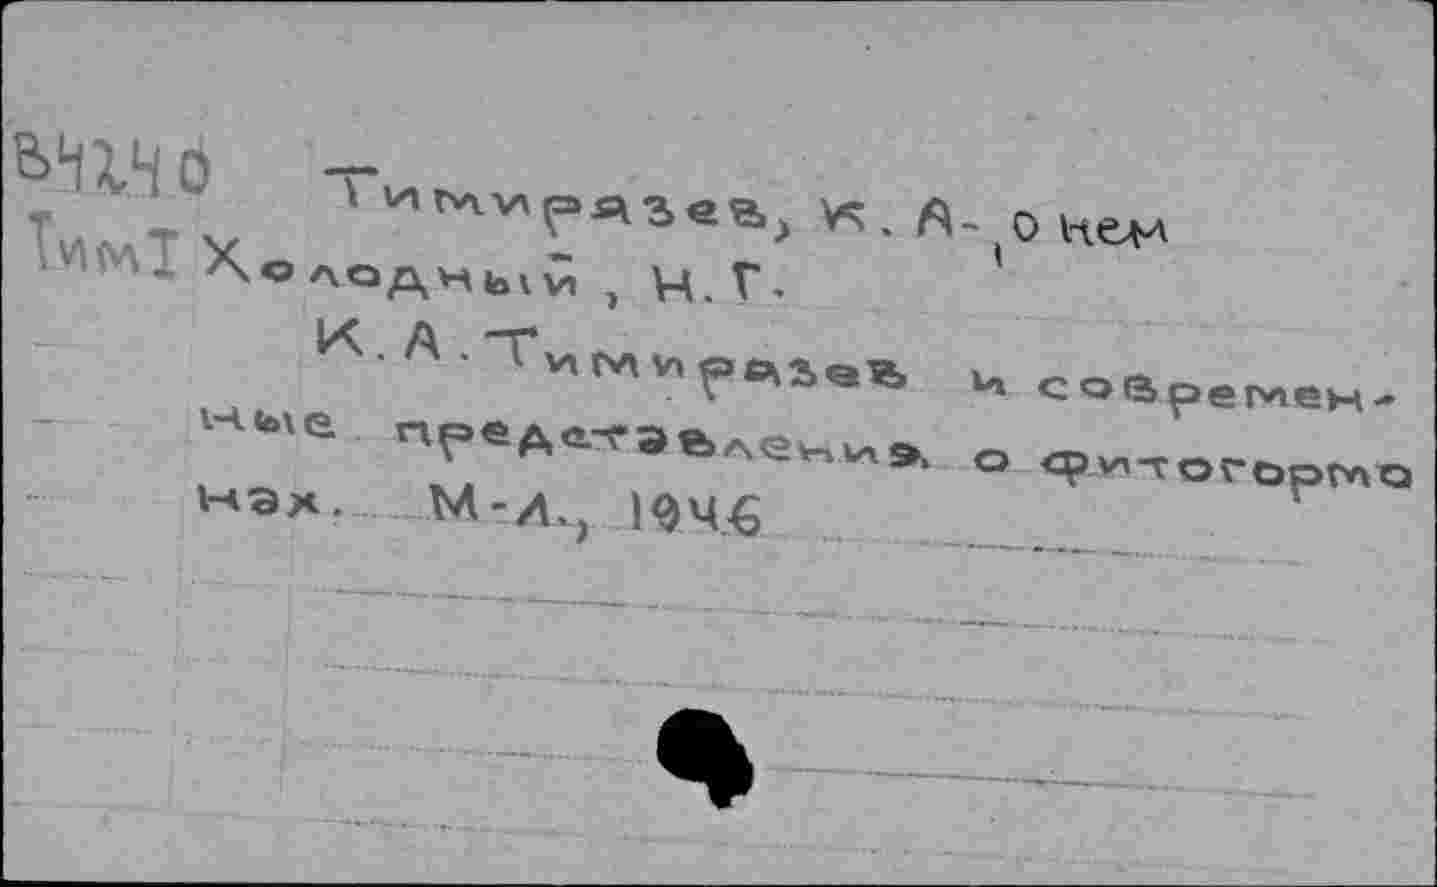 В4240 Тимирязев, К. А. , о нем
ТимТ Холодный , Н. Г.
К. А. Тимирязев и современ-
ные представления о фитогормо
нах. М-Л., 1946